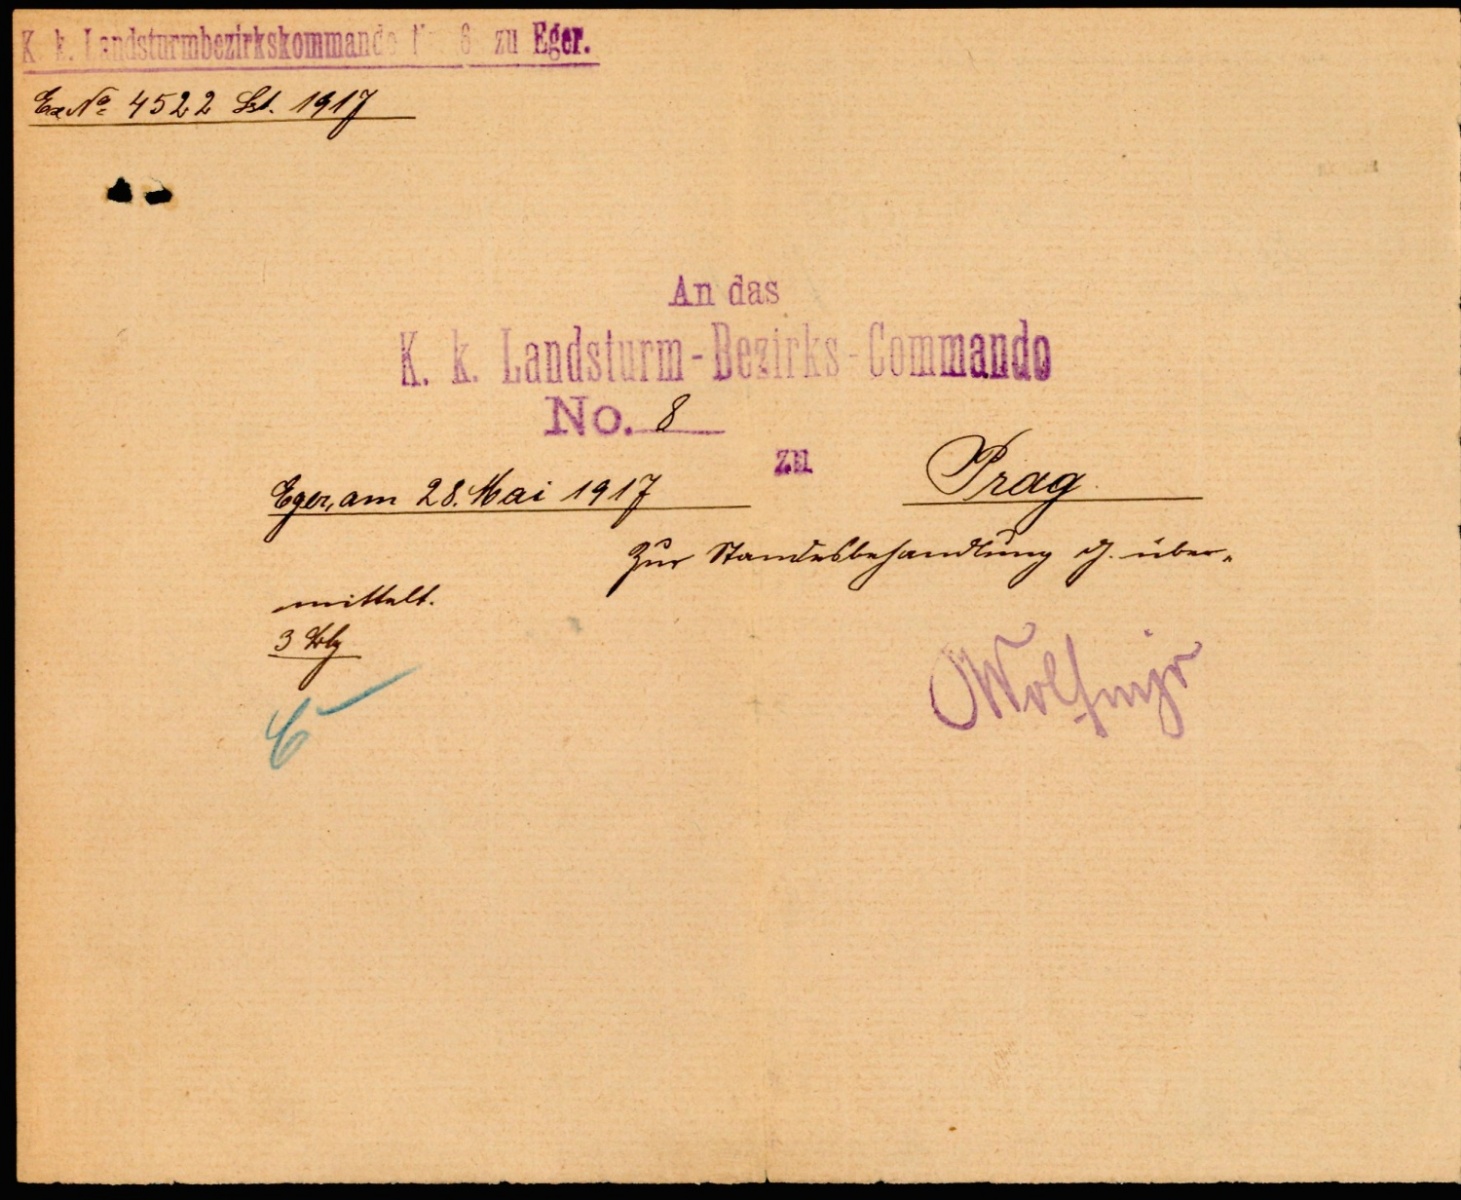 K. k. Landsturmbezirkskommando Nr. 6 zu Eger.
Ex No 4522 Lst. 1917
An das
K. k. Landsturm-Bezirks-Commando
No. 8
zu Prag
Eger, am 28. Mai 1917
Zur Standesbehandlung über-
mittelt.
3 Blg